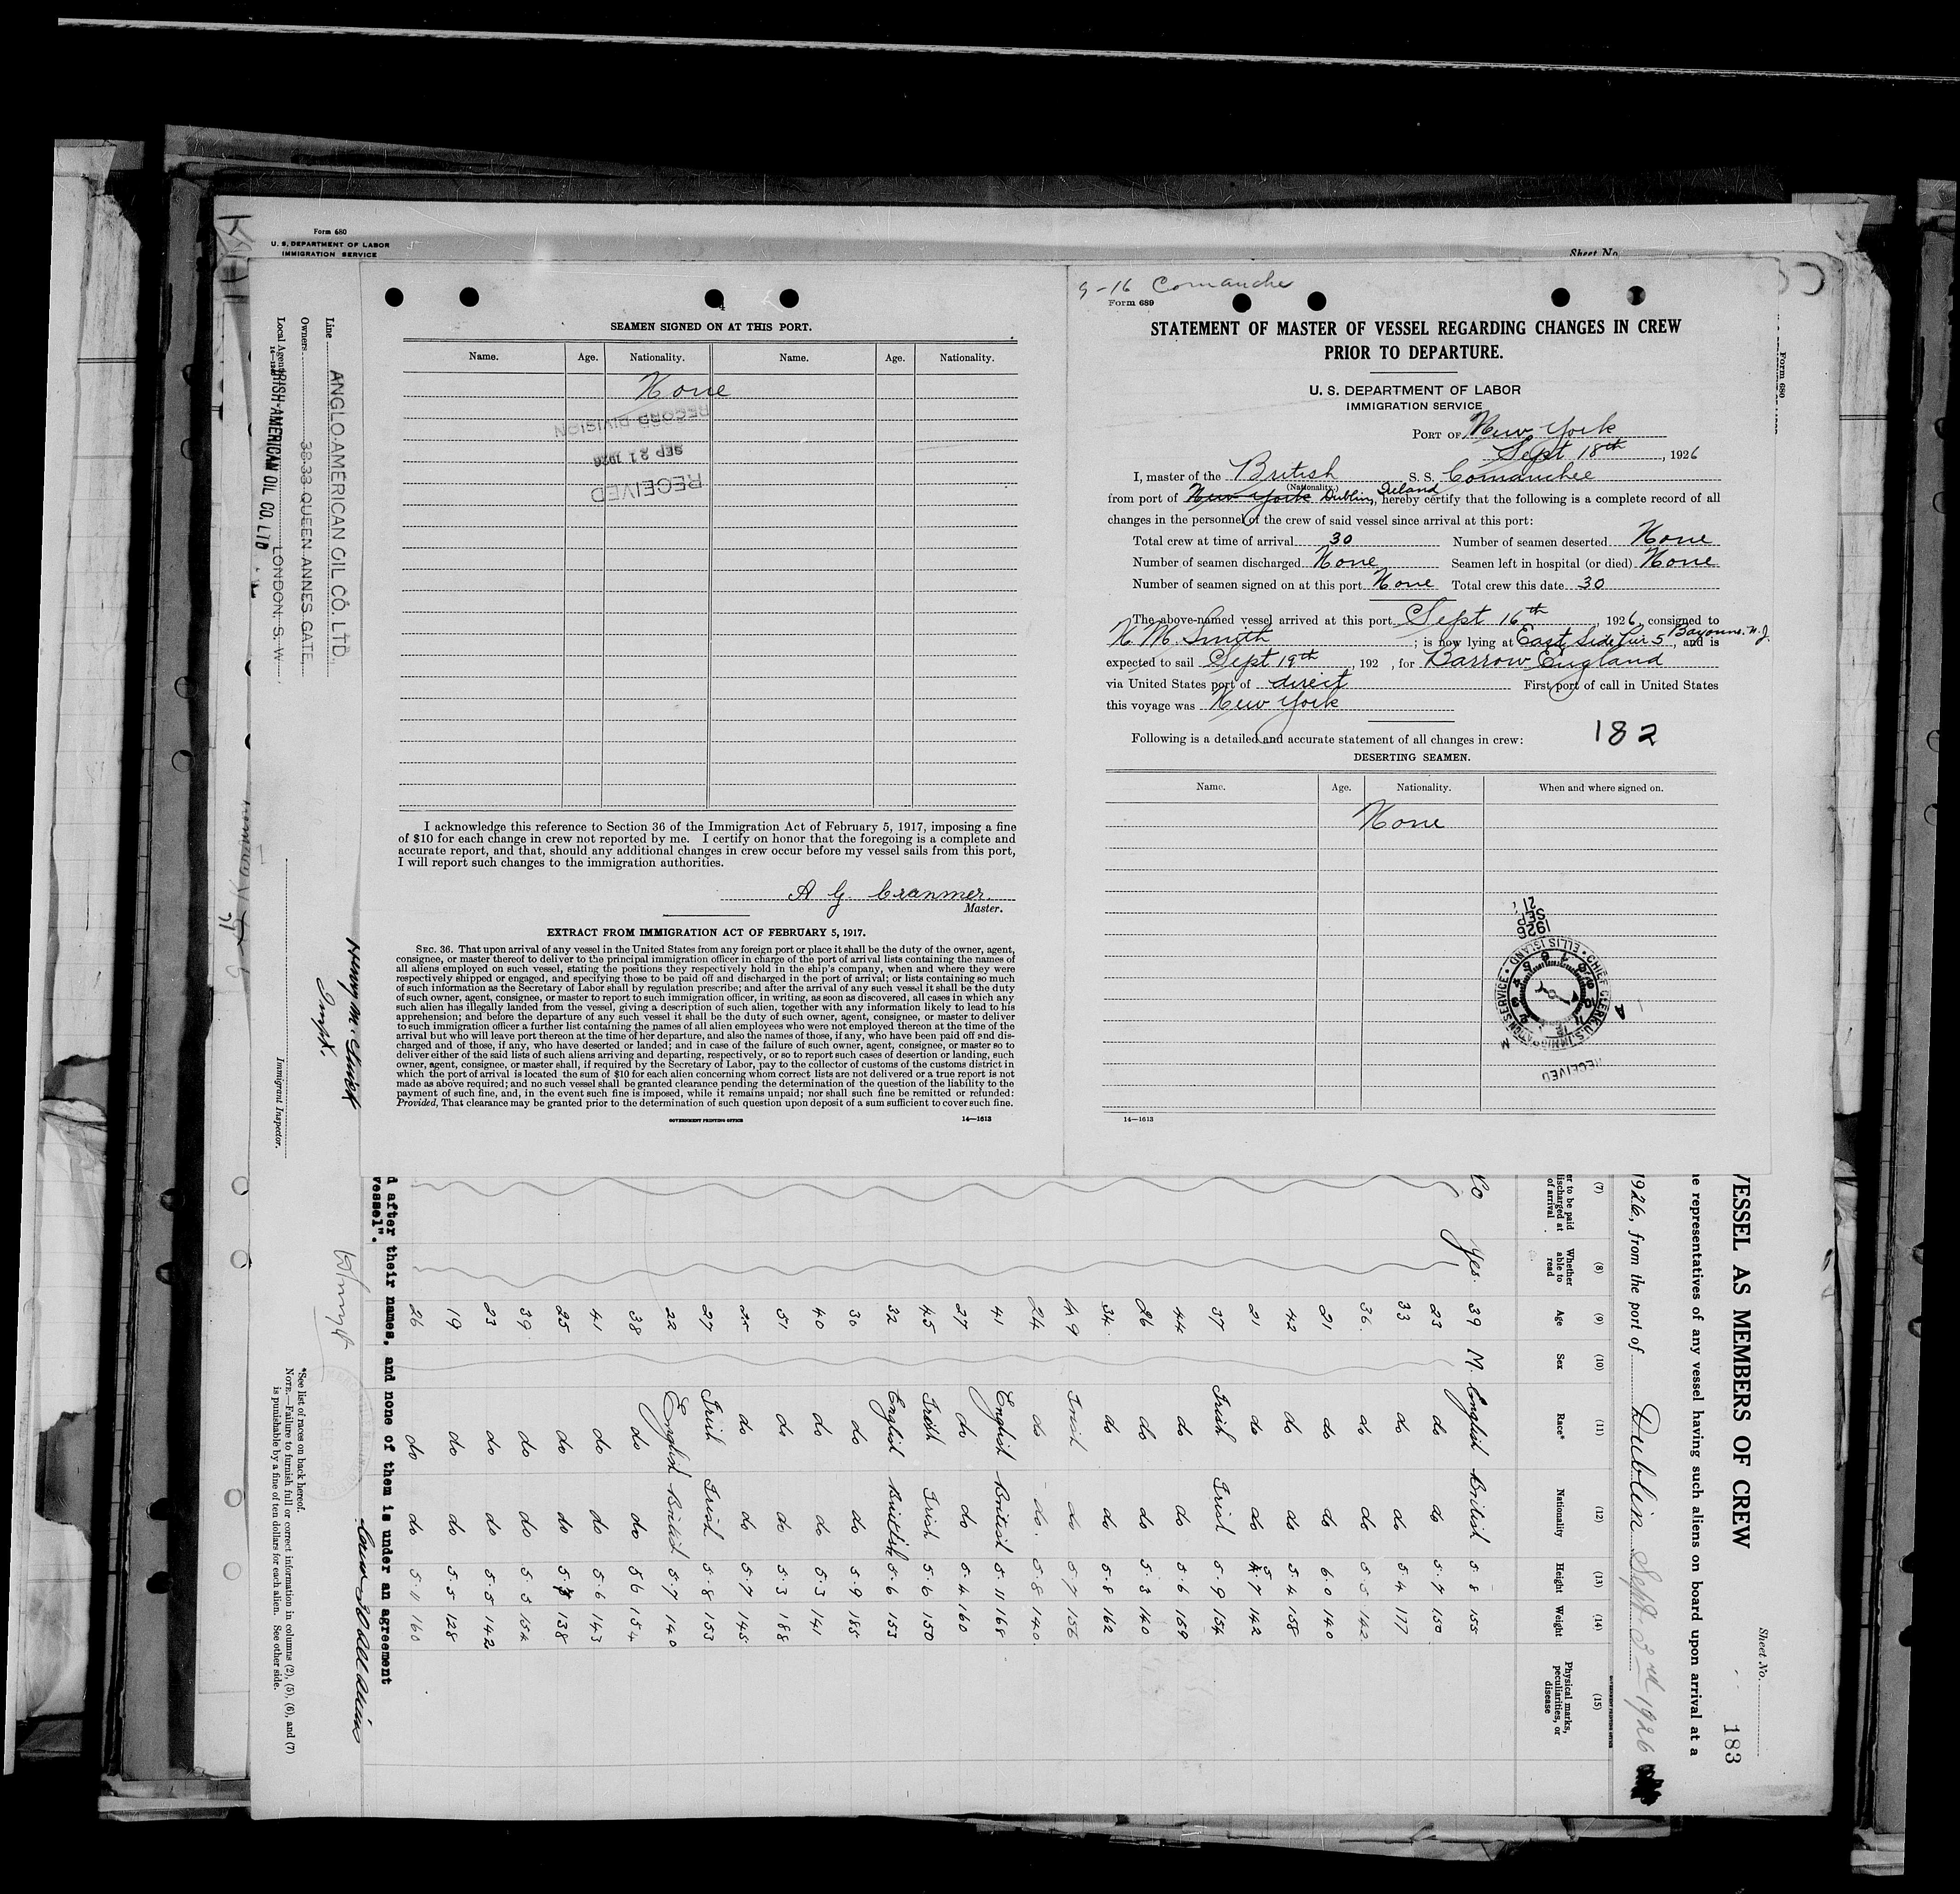 Form 680
U. S. DEPARTMENT OF LABOR
IMMIGRATION SERVICE
Sheet No.
SEAMEN SIGNED ON AT THIS PORT.
Name. Age. Nationality. Name. Age. Nationality.
None
RECORD DIVISION
SEP 21 1926
RECEIVED
I acknowledge this reference to Section 36 of the Immigration Act of February 5, 1917, imposing a fine
of $10 for each change in crew not reported by me. I certify on honor that the foregoing is a complete and
accurate report, and that, should any additional changes in crew occur before my vessel sails from this port,
I will report such changes to the immigration authorities.
A G Cranmer.
Master.
EXTRACT FROM IMMIGRATION ACT OF FEBRUARY 5, 1917.
SEC. 36. That upon arrival of any vessel in the United States from any foreign port or place it shall be the duty of the owner, agent,
consignee, or master thereof to deliver to the principal immigration officer in charge of the port of arrival lists containing the names of
all aliens employed on such vessel, stating the positions they respectively hold in the ship's company, when and where they were
respectively shipped or engaged, and specifying those to be paid off and discharged in the port of arrival; or lists containing so much
of such information as the Secretary of Labor shall by regulation prescribe; and after the arrival of any such vessel it shall be the duty
of such owner, agent, consignee, or master to report to such immigration officer, in writing, as soon as discovered, all cases in which any
such alien has illegally landed from the vessel, giving a description of such alien, together with any information likely to lead to his
apprehension; and before the departure of any such vessel it shall be the duty of such owner, agent, consignee, or master to deliver
to such immigration officer a further list containing the names of all alien employees who were not employed thereon at the time of the
arrival but who will leave port thereon at the time of her departure, and also the names of those, if any, who have been paid off and dis-
charged and of those, if any, who have deserted or landed; and in case of the failure of such owner, agent, consignee, or master so to
deliver either of the said lists of such aliens arriving and departing, respectively, or so to report such cases of desertion or landing, such
owner, agent, consignee, or master shall, if required by the Secretary of Labor, pay to the collector of customs of the customs district in
which the port of arrival is located the sum of $10 for each alien concerning whom correct lists are not delivered or a true report is not
made as above required; and no such vessel shall be granted clearance pending the determination of the question of the liability to the
payment of such fine, and, in the event such fine is imposed, while it remains unpaid; nor shall such fine be remitted or refunded:
Provided, That clearance may be granted prior to the determination of such question upon deposit of a sum sufficient to cover such fine.
GOVERNMENT PRINTING OFFICE 14—1613
9-16 Comanche
Form 689
STATEMENT OF MASTER OF VESSEL REGARDING CHANGES IN CREW
PRIOR TO DEPARTURE.
U. S. DEPARTMENT OF LABOR
IMMIGRATION SERVICE
PORT OF New York
Sept 18th, 1926
I, master of the British S. S. Comanchee
(Nationality.)
from port of New York Dublin, Ireland, hereby certify that the following is a complete record of all
changes in the personnel of the crew of said vessel since arrival at this port:
Total crew at time of arrival 30 Number of seamen deserted None
Number of seamen discharged None Seamen left in hospital (or died) None
Number of seamen signed on at this port None Total crew this date 30
The above-named vessel arrived at this port Sept 16th, 1926, consigned to
H. M. Smith; is now lying at East Side Pier 5 Bayonne, N.J., and is
expected to sail Sept 19th, 192 , for Barrow England
via United States port of direct First port of call in United States
this voyage was New York
182
Following is a detailed and accurate statement of all changes in crew:
DESERTING SEAMEN.
Name. Age. Nationality. When and where signed on.
None
1926
SEP
21
CHIEF CLERK U.S. IMMIGRATION SERVICE ELLIS ISLAND
RECEIVED
14—1613
Form 680
Line ANGLO-AMERICAN OIL CO. LTD.
Owners 38-33 QUEEN ANNES GATE,
LONDON, S. W.
Local Agents IRISH-AMERICAN OIL CO. LTD
Immigrant Inspector.
Sheet No.
183
VESSEL AS MEMBERS OF CREW
he representatives of any vessel having such aliens on board upon arrival at a
1926, from the port of Dublin Sept 3rd 1926
(7) (8) (9) (10) (11) (12) (13) (14) (15)
er to be paid discharged at of arrival Whether able to read Age Sex Race* Nationality Height Weight Physical marks, peculiarities, or disease
No Yes. 39 M. English British 5.8 155
23 do do 5.7 150
33 do do 5.4 177
36 do do 5.5 142
21 do do 6.0 140
42 do do 5.4 158
21 do do 5.7 142
37 Irish Irish 5.9 154
44 do do 5.6 159
26 do do 5.3 140
34 do do 5.8 162
49 Irish do 5.7 156
24 do do. 5.8 140.
41 English British 5.11 168
27 do do 5.4 160
45 Irish Irish 5.6 150
32 English British 5.6 153
30 do do 5.9 185
40 do do 5.3 141
51 do do 5.3 188
25 do do 5.7 145
27 Irish Irish 5.8 153
22 English British 5.7 140
38 do do 5.6 154
41 do do 5.6 143
25 do do 138
39 do do 5.5 154
23 do do 5.5 142
19 do do 5.5 128
26 do do 5.11 160
d after their names, and none of them is under an agreement
vessel".
*See list of races on back hereof.
NOTE.—Failure to furnish full or correct information in columns (2), (5), (6), and (7)
is punishable by a fine of ten dollars for each alien. See other side.